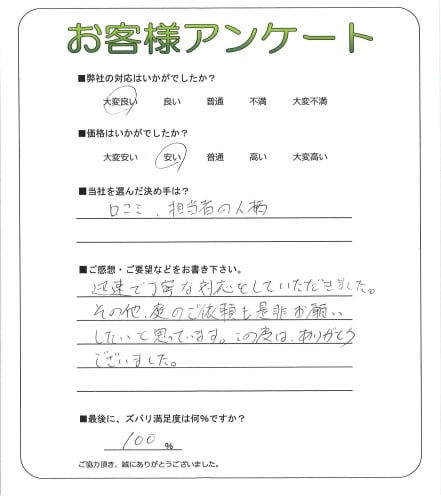 お客様アンケート
■弊社の対応はいかがでしたか？
大変良い 良い 普通 不満 大変不満
■価格はいかがでしたか？
大変安い 安い 普通 高い 大変高い
■当社を選んだ決め手は？
口コミ、担当者の人柄
■ご感想・ご要望などをお書き下さい。
迅速で丁寧な対応をしていただきました。
その他、庭のご依頼も是非お願い
したいと思っています。この度は、ありがとう
ございました。
■最後に、ズバリ満足度は何％ですか？
100 %
ご協力頂き、誠にありがとうございました。